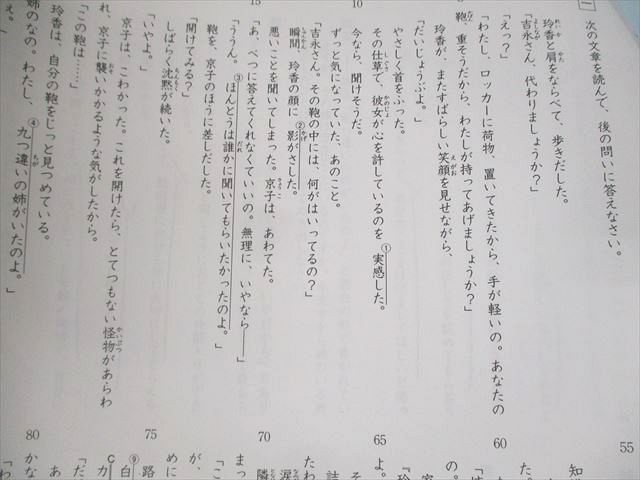 一 次の文章を読んで、後の問いに答えなさい。
玲香と肩をならべて、歩きだした。
「吉永さん、代わりましょうか？」
「えっ？」
「わたし、ロッカーに荷物、置いてきたから、手が軽いの。あなたの
鞄、重そうだから、わたしが持ってあげましょうか？」
玲香が、またすばらしい笑顔を見せながら、
「だいじょうぶよ。」
やさしく首をふった。
その仕草で、彼女が心を許しているのを①実感した。
今なら、聞けそうだ。
ずっと気になっていた、あのこと。
「吉永さん。その鞄の中には、何がはいってるの？」
瞬間、玲香の顔に②影がさした。
悪いことを聞いてしまった。京子は、あわてた。
「あ、べつに答えてくれなくていいの。無理に、いやなら――」
「ううん。③ほんとうは誰かに聞いてもらいたかったのよ。」
鞄を、京子のほうに差しだした。
「開けてみる？」
しばらく沈黙が続いた。
「いやよ。」
京子は、こわかった。これを開けたら、とてつもない怪物があらわ
れ、京子に襲いかかるような気がしたから。
「この鞄は……」
玲香は、自分の鞄をじっと見つめている。
姉なの。わたし、④九つ違いの姉がいたのよ。」
え。」
10
15
55
60
65
70
75
80